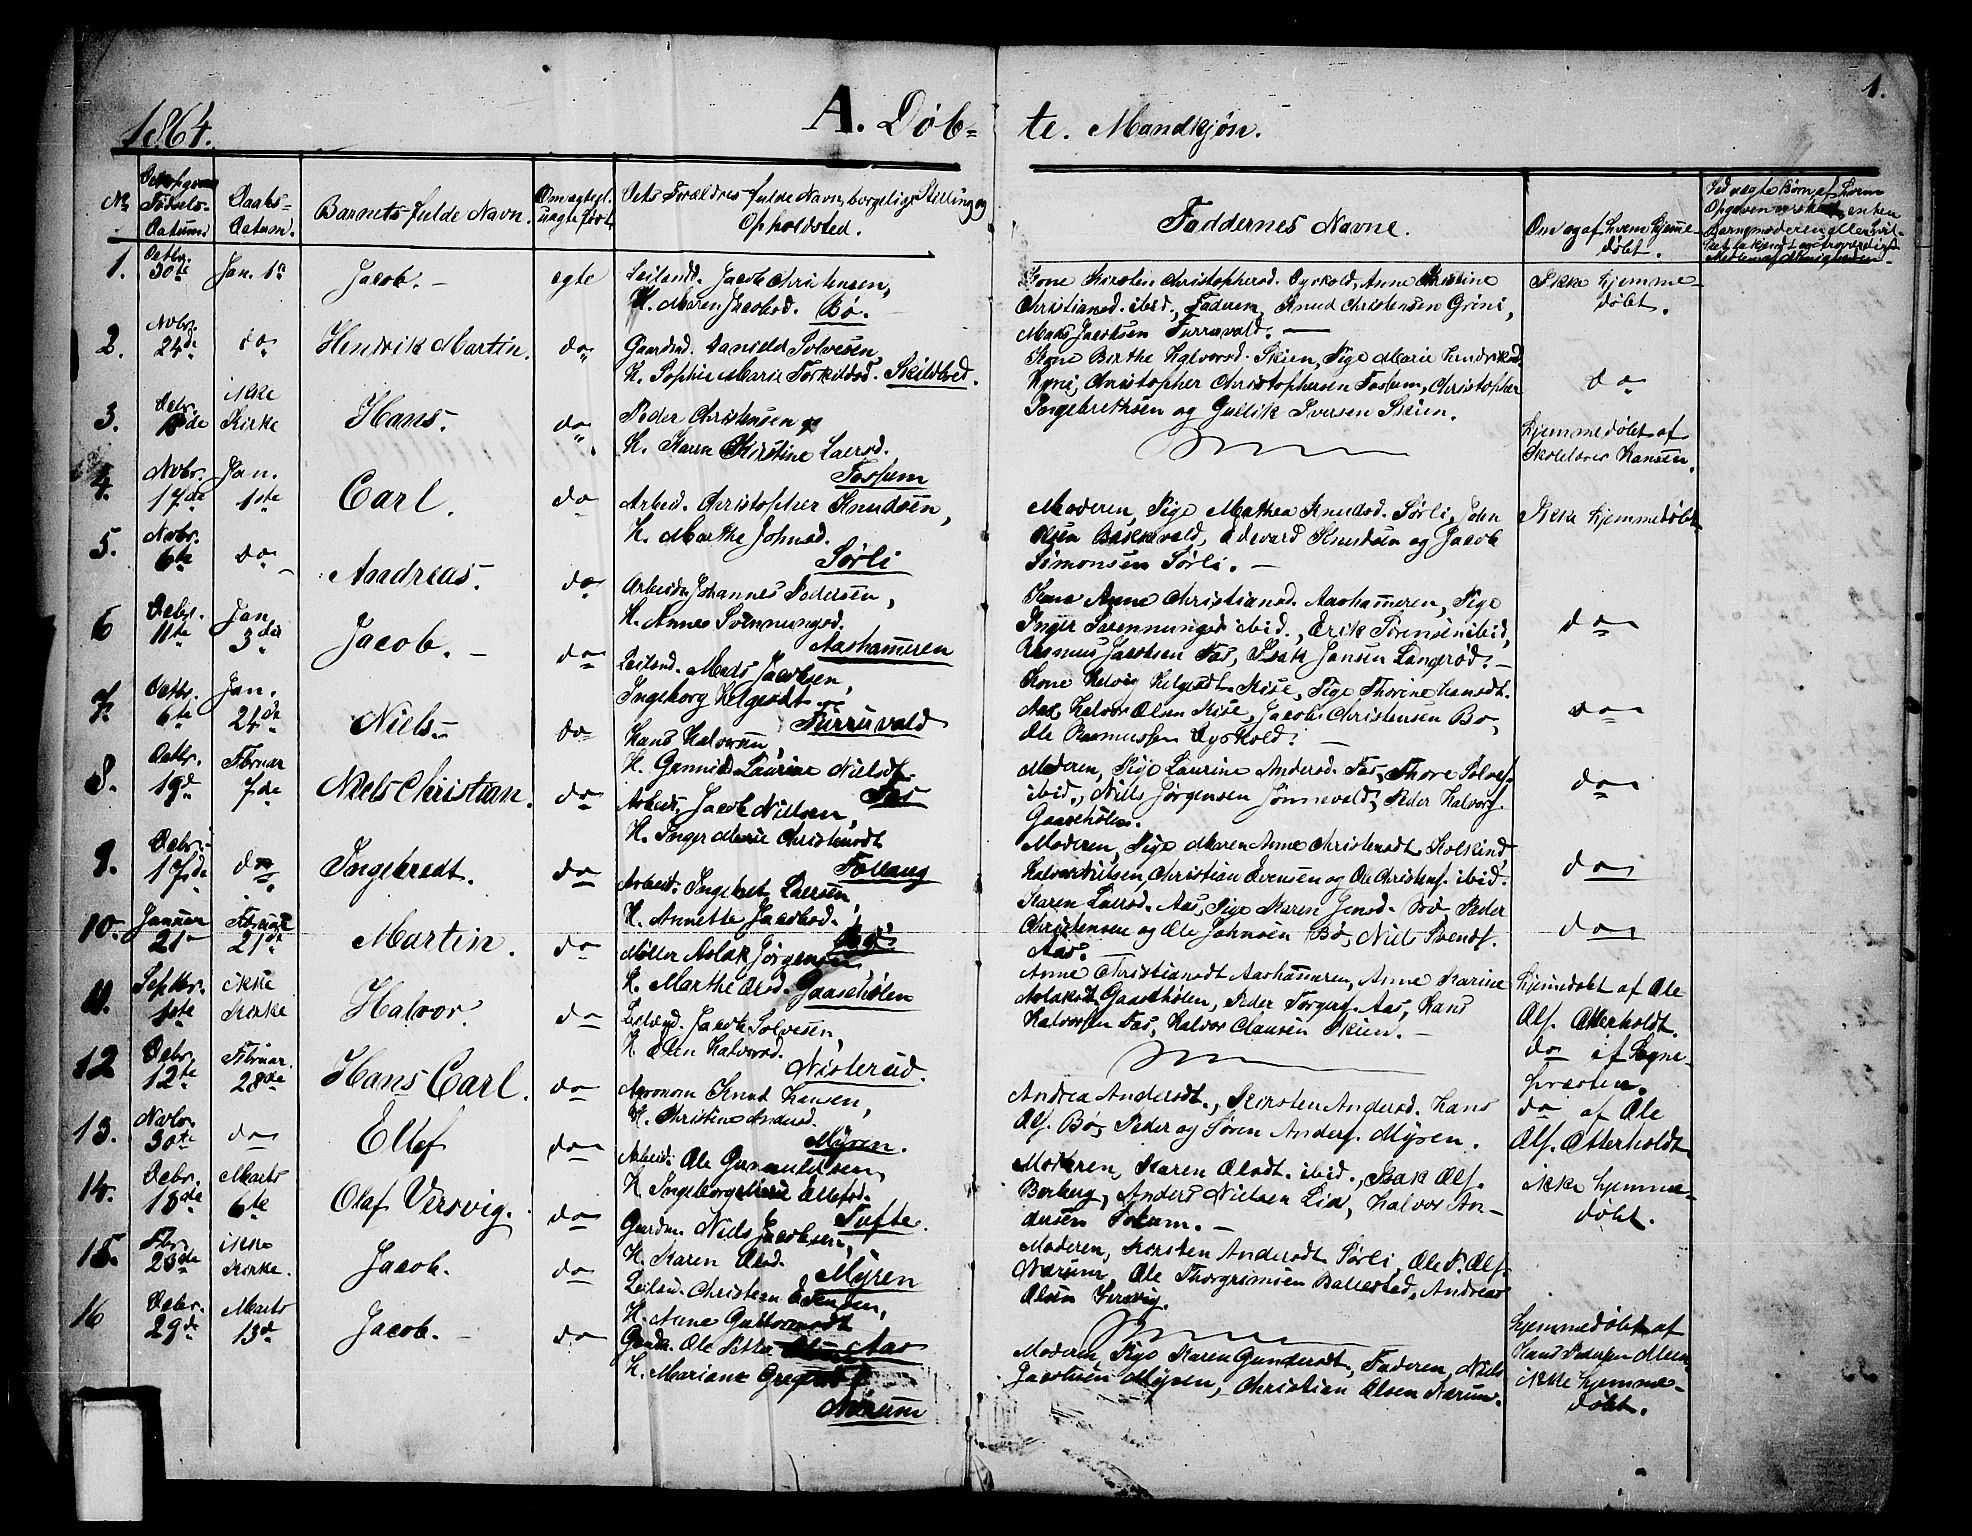 1.
1864. A. Døb- te. Mandkjøn.
No
Fødsels-
Datum.
Daabs-
Datum.
Barnets fulde Navn.
Om ægte el.
uægte født.
Dets Forældres fulde Navn, borgelige Stilling og
Opholdsted.
Faddernes Navne.
Om og af hvem hjemme-
døbt.
1. Octbr. 30te Jan. 1ste Jacob. - egte
Leilænd. Jacob Christensen,
K. Maren Jacobsd. Bø.
Kone Kirsten Christophersd. Dyrkold, Anne Kristine
Christiansd. ibid., Faderen, Knud Christensen Grini,
Mads Jacobsen Furruvald. -
Ikke hjemme-
døbt.
2. Novbr. 24de do Henrik Martin. do
Gaardmd. Daniel Solvesen,
K. Sophie Marie Torkildsd. Skilbred.
Kone Birthe Halvorsd. Skien, Pige Marie Hendriksd.
Christopher Christophersen Fossum, Christopher
Ingebrethsen og Gullik Iversen Skien.
do
3. Debr. ikke Kirke Hans. do
Peder Christensen og
K. Karen Kirstine Larsd.
Fossum
Hjemmedøbt af
Skolelærer Hansen.
4. Novbr. 17de Jan. 1ste Carl. do
Arbeid. Christopher Knudsen,
K. Marthe Johnsd.
Sørli
Moderen, Pige Mathea Knudsd. Sørli, Eden
Olsen Bakkevald, Edevard Knudsen og Jacob
Simonsen Sørli. -
Ikke hjemmedøbt
5. Novbr. 6te do Andreas. do
Arbeidr. Johannes Pedersen,
K. Anne Svennungsd.
Aashammeren
Kone Anne Christiansd. Aashammeren, Pige
Inger Svennungsd. ibid., Erik Sørensen ibid,
Rasmus Jacobsen Aas, Isak Jansen Langerød. -
do
6 Debr. 11te Jan. 3die Jacob. - do
Leilænd. Mads Jacobsen,
Ingeborg Helgesdt
Furruvald
Kone Helvig Helgesdt. Kise, Pige Thorine Hansdt.
Aas, Halvor Olsen Kise, Jacob Christensen Bø,
Ole Rasmussen Dyrkold. -
do
7. Octbr. 6te Jan. 24de Niels. do
Hans Halvorsen,
K. Gunnild Laurine Nielsdt.
Aas
Moderen, Pige Laurine Andersd. Aas, Thore Solves.
ibid., Niels Jørgensen Jønnevald, Peder Halvors.
Gaaseholen.
do
8. Octbr. 19d. Februar 7de Niels Christian. do
Arbeid. Jacob Nielsen,
K. Inger Marie Christensdt
Follaug
Moderen, Pige Maren Anne Christensdt Kolkind,
Christian Evensen og Ole Christens. ibid.
do
9. Debr. 17de do Ingebredt. do
Arbeid. Ingebret Larsen,
K. Annette Jacobsd.
Karen Larsd. Aas, Pige Karen Jensd. Bø, Peder
Christensen og Ole Johnsen Bø, Niels Svends.
Aas.
do
10. Januar 21de Februar 21de Martin. do
Møller Aslak Jørgensen
K. Marthe Olsd. Gaaseholen
Anne Christiansdt Aashammeren, Anne Karine
Aslaksdt Gaaseholen, Peder Torgers. Aas, Hans
Halvorsen Aas, Halvor Clausen Skien. -
Hjemdøbt af Ole
Ols. Otterholdt.
11. Septbr. 1ste ikke Kirke Halvor. do
Leilænd. Jacob Solvesen,
K. Elen Halvorsd.
Nisterud.
do af Sogne-
præsten.
12 Debr. 12te Februar 28de Hans Carl. do
Agronom Knud Hansen,
K. Christine Andersd.
Myren.
Andrea Andersdt., Kirsten Andersd. Hans
Ols. Bø, Peder og Søren Anders. Myren.
do af Ole
Ols. Otterholdt
13. Novbr. 30te do Ellef do
Arbeid. Ole Gunnuldsen,
K. Ingeborg Marie Ellefsd.
Tufte.
Moderen, Karen Olsdt. ibid., Isak Ols.
Borberg, Anders Nielsen Lia, Halvor An-
dersen Solum. -
ikke hjemme-
døbt.
14. Debr. 18de Marts 6te Olaf Versvig. do
Gaardm. Niels Jacobsen,
K. Karen Olsd.
Myren
Moderen, Kirsten Andersdt Sørli, Ole P. Ols.
Nærum, Ole Thorgrimsen Ballestad, Andreas
Olsen Versvig.
15. Fbr. 23de ikke Kirke. Jacob. do
Leilæn. Christen Edensen,
K. Anne Guttormsdt
Aas
Hjemmedøbt af
Hans Pedersen Moen
16 Debr. 29de Marts 13de Jacob. - do
Gaardm. Ole Petter Aas
K. Mariane Gregersdt
Nærum
Moderen, Pige Karen Gundersdt, Faderen, Niels
Jacobsen Myren, Christian Olsen Nærum.
ikke hjemme-
døbt.